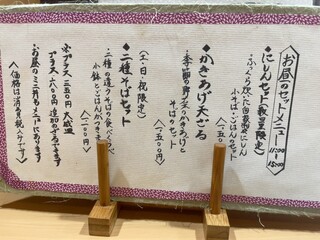 お昼のセットメニュー
11:00〜
15:00
◆にしんセット(数量限定)
ふっくら炊いた自家製にしん
小そば・ごはんのセット
◆かきあげ天ざる
季節の野菜のかきあげと
そばのセット
(一五〇〇円)
(土・日・祝限定)
◆二種そばセット
二種の違うそばの食べくらべ
小鉢とごはんがつきます
※プラス二五〇円 大盛
プラス六〇〇円 追加
できます
・お昼のミニ丼もメニューにあります
(価格は消費税込みです)